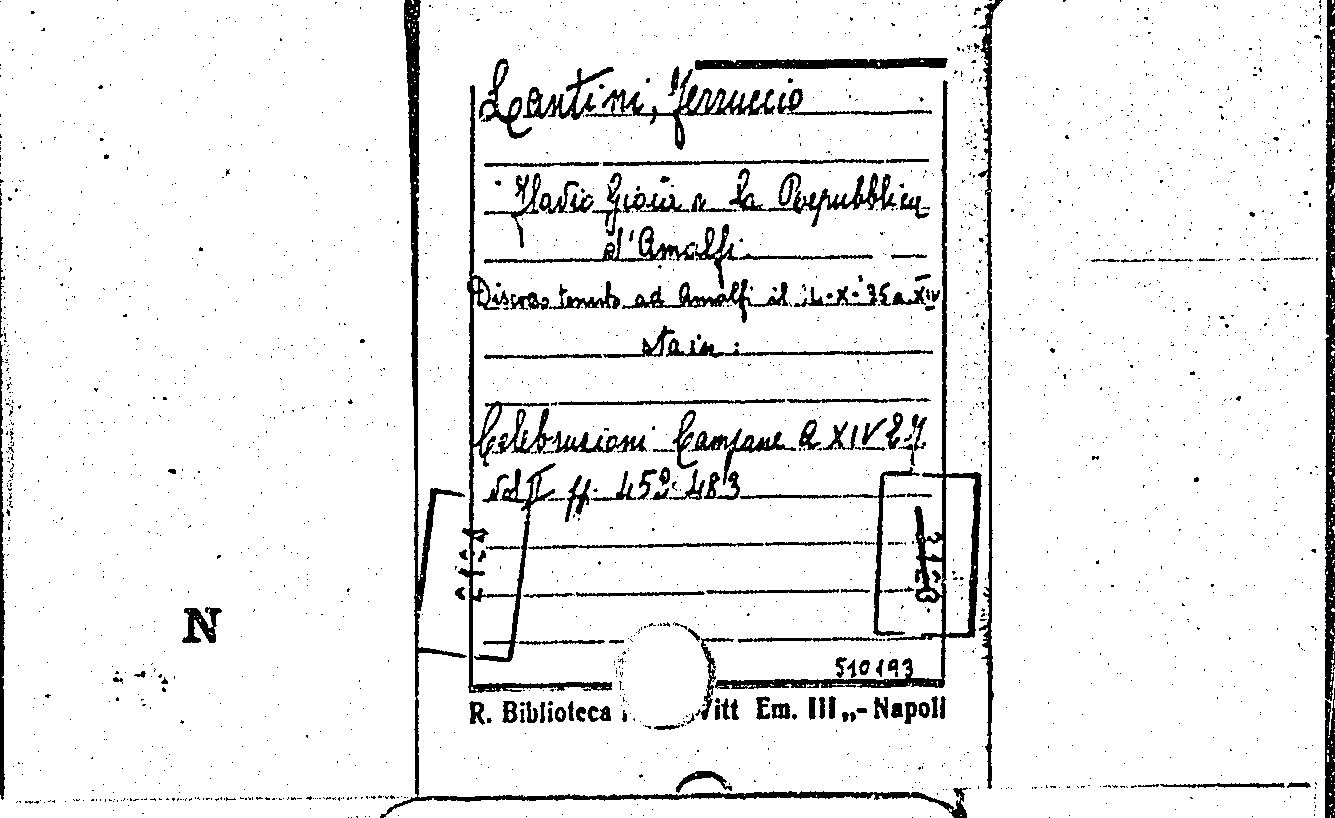 Lantini, Ferruccio
Flavio Gioia e la Repubblica
d'Amalfi.
Discorso tenuto ad Amalfi il -X-'35 a. XIV
sta in:
Celebrazioni Campane a XIV E.F.
vol II ff. 459-483
N
510193
R. Biblioteca Vitt Em. III „- Napoli